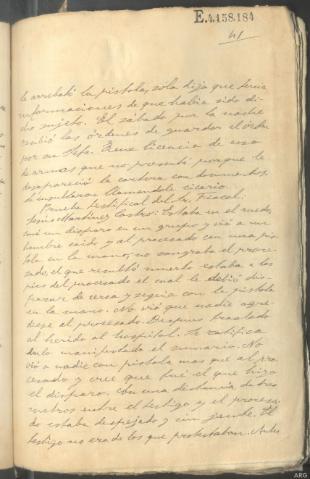 E.4.158.184
41
le arrebató la pistola, sólo dijo que tenía
informaciones de que había sido di-
cho sujeto. El sábado por la noche
recibió las órdenes de guardar el orden
por su Jefe. Tiene licencia de uso
de armas que no presentó porque le
desapareció la cartera con documentos.
llamandole
Prueba testifical del Sr. Fiscal:
Jesús Martínez Castro: Estaba en el ruedo,
oyó un disparo en un grupo y vió a un
hombre caído y al procesado con una pis-
tola en la mano; no sangraba el proce-
sado, el que resultó muerto estaba a los
pies del procesado el cual le debió dis-
parar de cerca y seguía con la pistola
en la mano. No vió que nadie agre-
diese al procesado. Después trasladó
al herido al hospital. Se ratifica
en lo manifestado el sumario. No
vió a nadie con pistola mas que al pro-
cesado y cree que fué el que hizo
el disparo. Con una distancia de tres
metros sobre el testigo y el procesa-
do estaba despejado y sin gente. El
testigo no era de los que protestaban. Antes
ARG